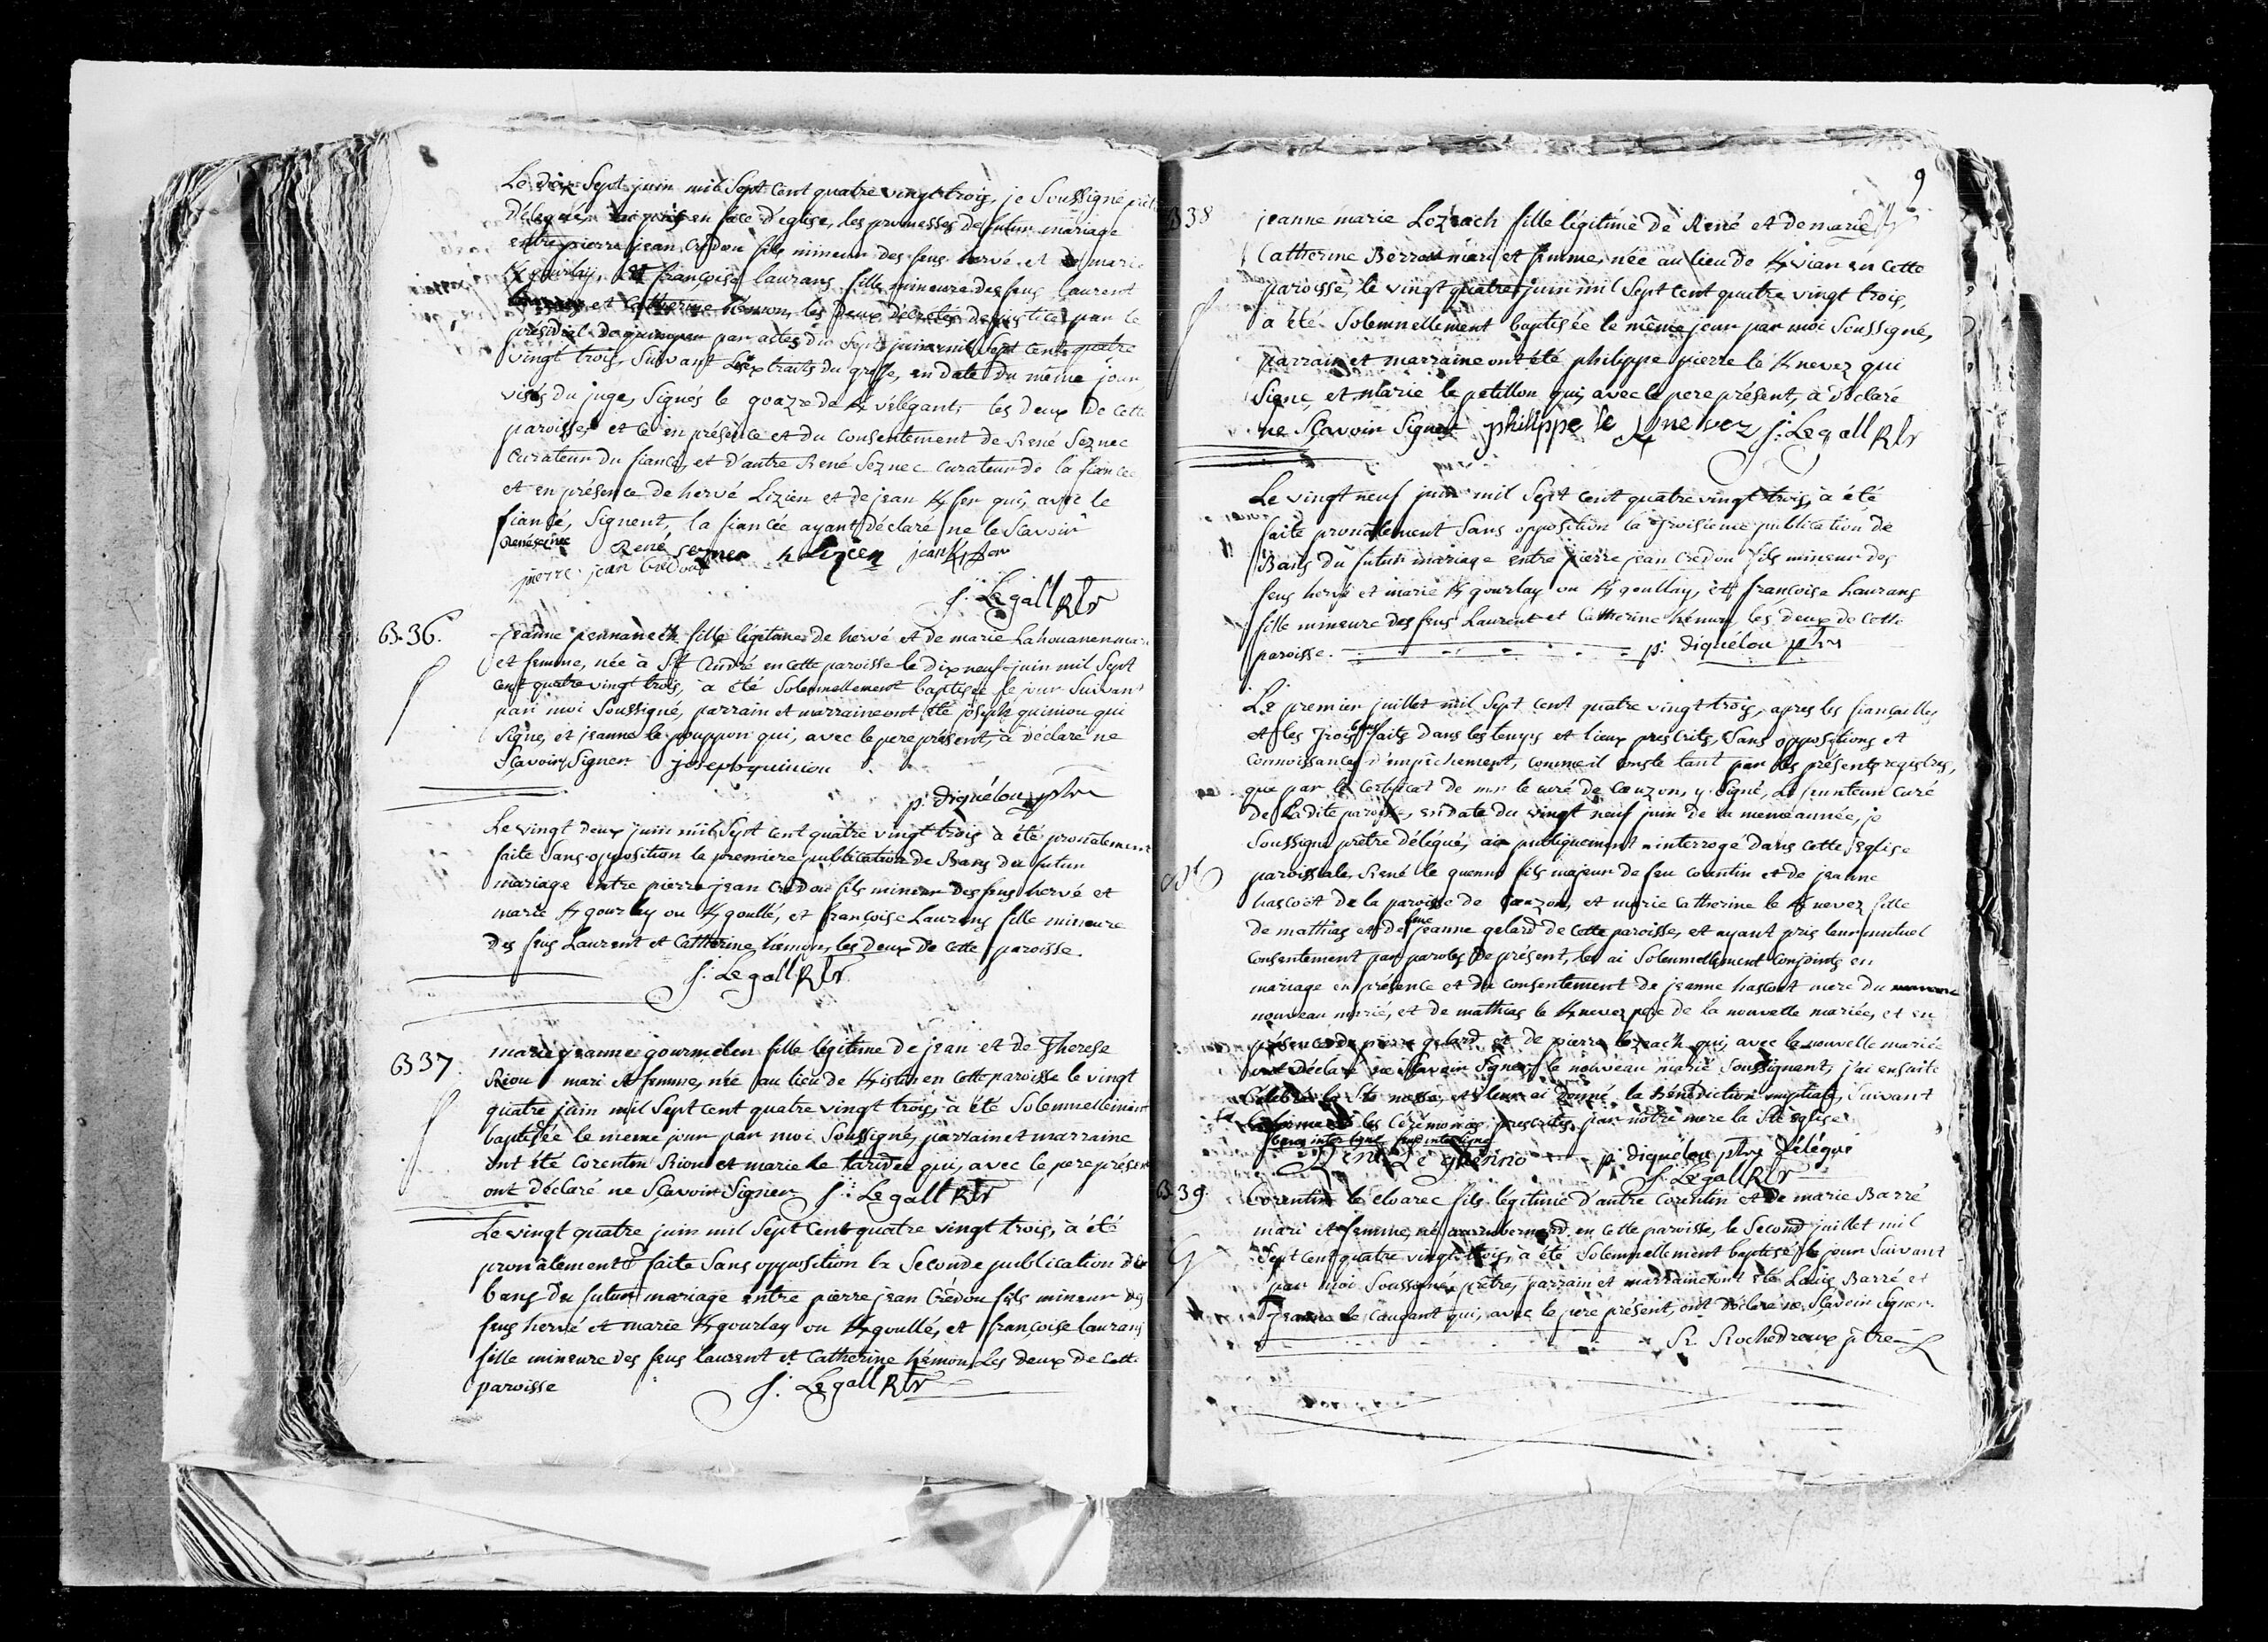 8
Le dix Sept juin mil Sept cent quatre vingt trois, je Soussigné prêt
Délegué, ai pris en face d'eglise, les promesses de futur mariage
entre pierre jean Crédou fils mineur des feus hervé et de marie
Kgourlay, et françoise laurans fille mineure des feus laurent
et Catherine hémon, les deux décretés de justice par le
présidial de quimper par actes du Sept juin mil sept cent quatre
vingt trois, Suivant Les extraits du greffe, en date du même jour
visés du juge, Signés le goazre de Kvélégant, les deux de cette
paroisse, et ce en présence et du consentement de René Seznec
Curateur du fiancé, et d'autre René Seznec Curateur de la fiancée
et en présence de hervé Lizien et de jean Kfer qui, avec le
fiancé, Signent, la fiancée ayant déclaré ne le Scavoir
René seznec René seznec h lizien jean Kfer
pierre jean Credou
J: Le gall Rtr
B. 36. Jeanne pennanech fille légitime de hervé et de marie Lahouanen mari
et femme, née à St André en cette paroisse le dix neuf juin mil Sept
cent quatre vingt trois, a été Solemnellement baptisée le jour Suivant
par moi Soussigné, parrain et marraine ont été joseph quiniou qui
Signe, et jeanne le pouppon qui, avec le pere présent, a déclaré ne
Sçavoir Signer joseph quiniou
p. diquélou ptre
Le vingt deux juin mil Sept cent quatre vingt trois a été pronâlement
faite Sans opposition la premiere publication de Bans du futur
mariage entre pierre jean Crédou fils mineur des feus hervé et
marie Kgourlay ou Kgoullé, et françoise Laurans fille mineure
des feus Laurent et Catherine hémon, les deux de cette paroisse.
J: Le gall Rtr
B 37. marie jeanne gourmelen fille légitime de jean et de Therese
Riou mari et femme, née au lieu de Kistin en cette paroisse le vingt
quatre juin mil Sept cent quatre vingt trois, a été Solemnellement
baptisée le meme jour par moi Soussigné, parrain et marraine
ont été Corentin Riou et marie le taridec qui, avec le pere présent
ont déclaré ne Sçavoir Signer J: Le gall Rtr
Le vingt quatre juin mil Sept Cent quatre vingt trois, a été
pronâlement faite Sans opposition la Seconde publication de
bans du futur mariage entre pierre jean Crédou fils mineur des
feus hervé et marie Kgourlay ou Kgoullé, et françoise laurans
fille mineure des feus laurent et Catherine hémon, Les deux de cette
paroisse J: Le gall Rtr
9
B 38 jeanne marie Lozeach fille légitime de René et de marie
Catherine Berrou mari et femme, née au lieu de Kvian en cette
paroisse, le vingt quatre juin mil Sept cent quatre vingt trois,
a été Solemnellement baptisée le même jour par moi Soussigné,
parrain et marraine ont été philippe pierre le Knevez qui
Signe, et marie le petillon qui, avec le pere présent, a déclaré
ne Sçavoir Signer philippe le Knevez J: Le gall Rtr
Le vingt neuf juin mil Sept cent quatre vingt trois, a été
faite pronâlement Sans opposition la troisieme publication de
Bans du futur mariage entre pierre jean Crédou fils mineur des
feus hervé et marie Kgourlay ou Kgoullay, et françoise Laurans
fille mineure des feus Laurent et Catherine hémon, les deux de cette
paroisse. p: diquélou ptre
Le premier juillet mil Sept cent quatre vingt trois, apres les fiançailles,
et les trois bans faits dans les temps et lieux prescrits, Sans oppositions et
connoissances d'empêchement, comme il conste tant par les présents registres,
que par le Certificat de mr le curé de Cauzon, y Signé, Curé
de Ladite paroisse, en date du vingt neuf juin de la meme année, je
Soussigné prêtre délégué, ai publiquement interrogé dans cette Eglise
paroissiale, René le guenno fils majeur de feu Corentin et de jeanne
hascoët de la paroisse de Cauzon, et marie Catherine le Knevez fille
de mathias et de feue jeanne gelard de Cette paroisse, et ayant pris leur mutuel
consentement par paroles de présent, les ai Solemnellement Conjoints en
mariage en présence et du consentement de jeanne hascoet mere du
nouveau marié, et de mathias le Knevez pere de la nouvelle mariée, et en
présence de pierre gelard et de pierre lozeach qui, avec la nouvelle mariée
ont déclaré ne Sçavoir Signer, le nouveau marié Soussignant, j'ai ensuite
Célébré la Ste messe, et leur ai donné la bénédiction nuptiale, Suivant
la forme et les Cérémonies prescrites par notre mere la Ste Eglise
bans interligne feue interligne
René Le guenno p. diquélou ptre délégué
J: Le gall Rtr
B 39. Corentin le cloarec fils légitime d'autre Corentin et de marie Barré
mari et femme, né en cette paroisse, le Second juillet mil
Sept cent quatre vingt trois, a été Solemnellement baptisé le jour Suivant
par moi Soussigné prêtre, parrain et marraine ont été Louis Barré et
jeanne le Caugant qui, avec le pere présent, ont déclaré ne Sçavoir Signer.
R. Rochedreux ptre